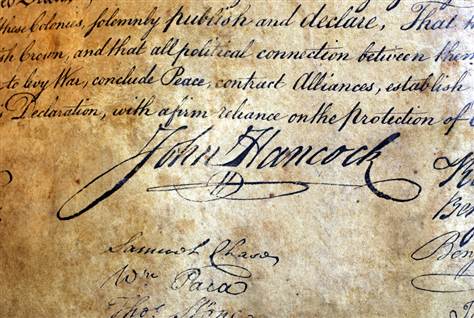 these Colonies, solemnly publish and declare, That
Crown, and that all political connection between them
to levy War, conclude Peace, contract Alliances, establish
Declaration, with a firm reliance on the protection of
John Hancock
Samuel Chase
Wm Paca
Thos Stone
Ben
Benj